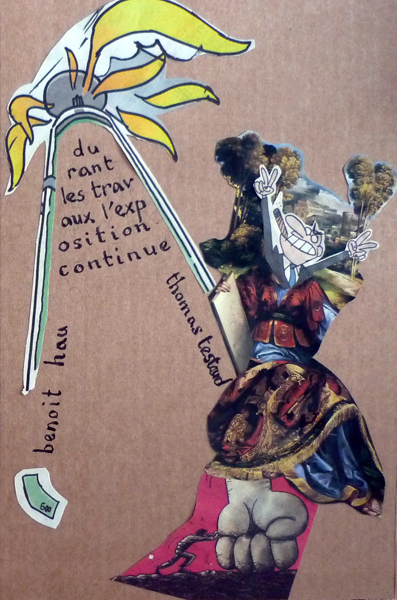 du
rant
les trav
aux l'exp
osition
continue
thomas testard
benoit hau